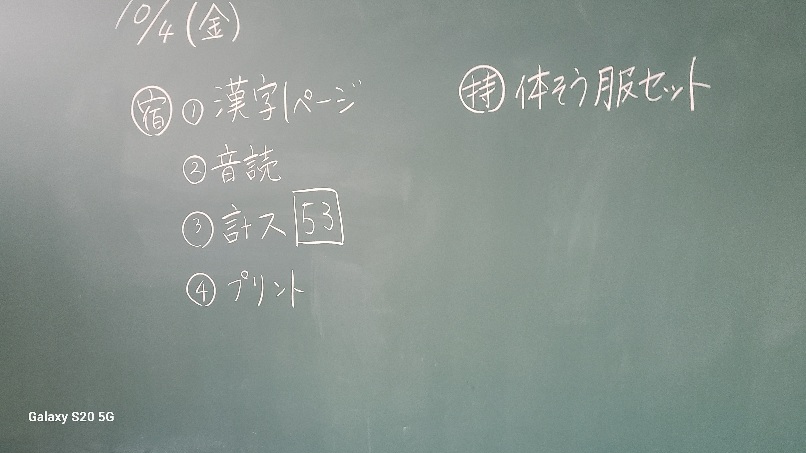 10/4(金)
宿 ① 漢字1ページ
② 音読
③ 計ス 53
④ プリント
持 体そう服セット
Galaxy S20 5G